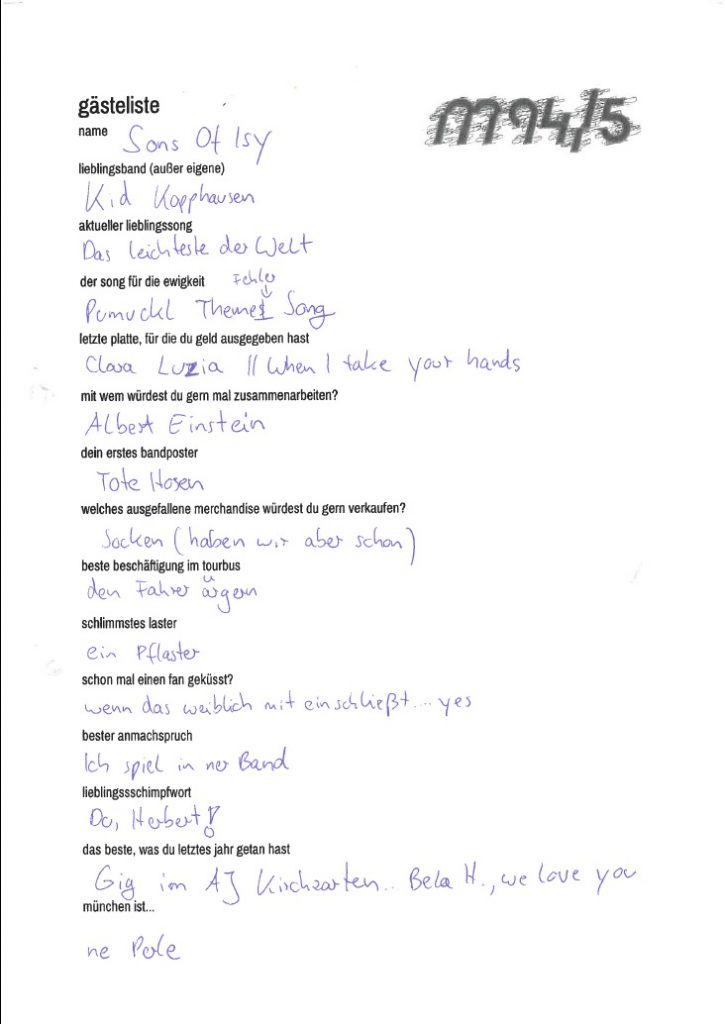 gästeliste
m94/5
name Sons Of Isy
lieblingsband (außer eigene)
Kid Kopphausen
aktueller lieblingssong
Das leichteste der Welt
der song für die ewigkeit Fehler
Pumuckl Themes Song
letzte platte, für die du geld ausgegeben hast
Clara Luzia || When I take your hands
mit wem würdest du gern mal zusammenarbeiten?
Albert Einstein
dein erstes bandposter
Tote Hosen
welches ausgefallene merchandise würdest du gern verkaufen?
Socken (haben wir aber schon)
beste beschäftigung im tourbus
den Fahrer ärgern
schlimmstes laster
ein Pflaster
schon mal einen fan geküsst?
wenn das weiblich mit einschließt.... yes
bester anmachspruch
Ich spiel in ner Band
lieblingssschimpfwort
Du, Herbert!
das beste, was du letztes jahr getan hast
Gig im AJ Kirchzarten.. Bela H., we love you
münchen ist...
ne Perle